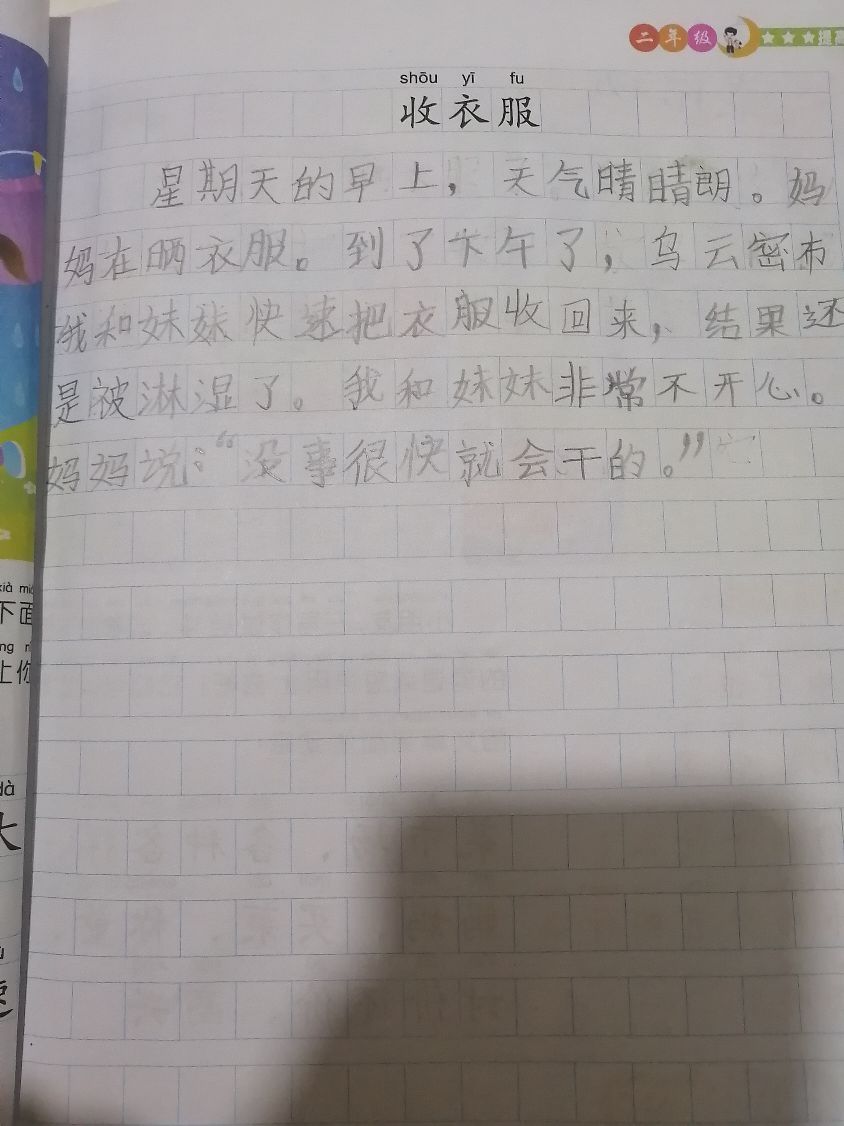 二年级 ★★★提高
shōu yī fu
收衣服
星期天的早上，天气晴晴朗。妈
妈在晒衣服。到了下午了，乌云密布
我和妹妹快速把衣服收回来，结果还
是被淋湿了。我和妹妹非常不开心。
妈妈说：“没事很快就会干的。”
xià
下面
上你
dà
大